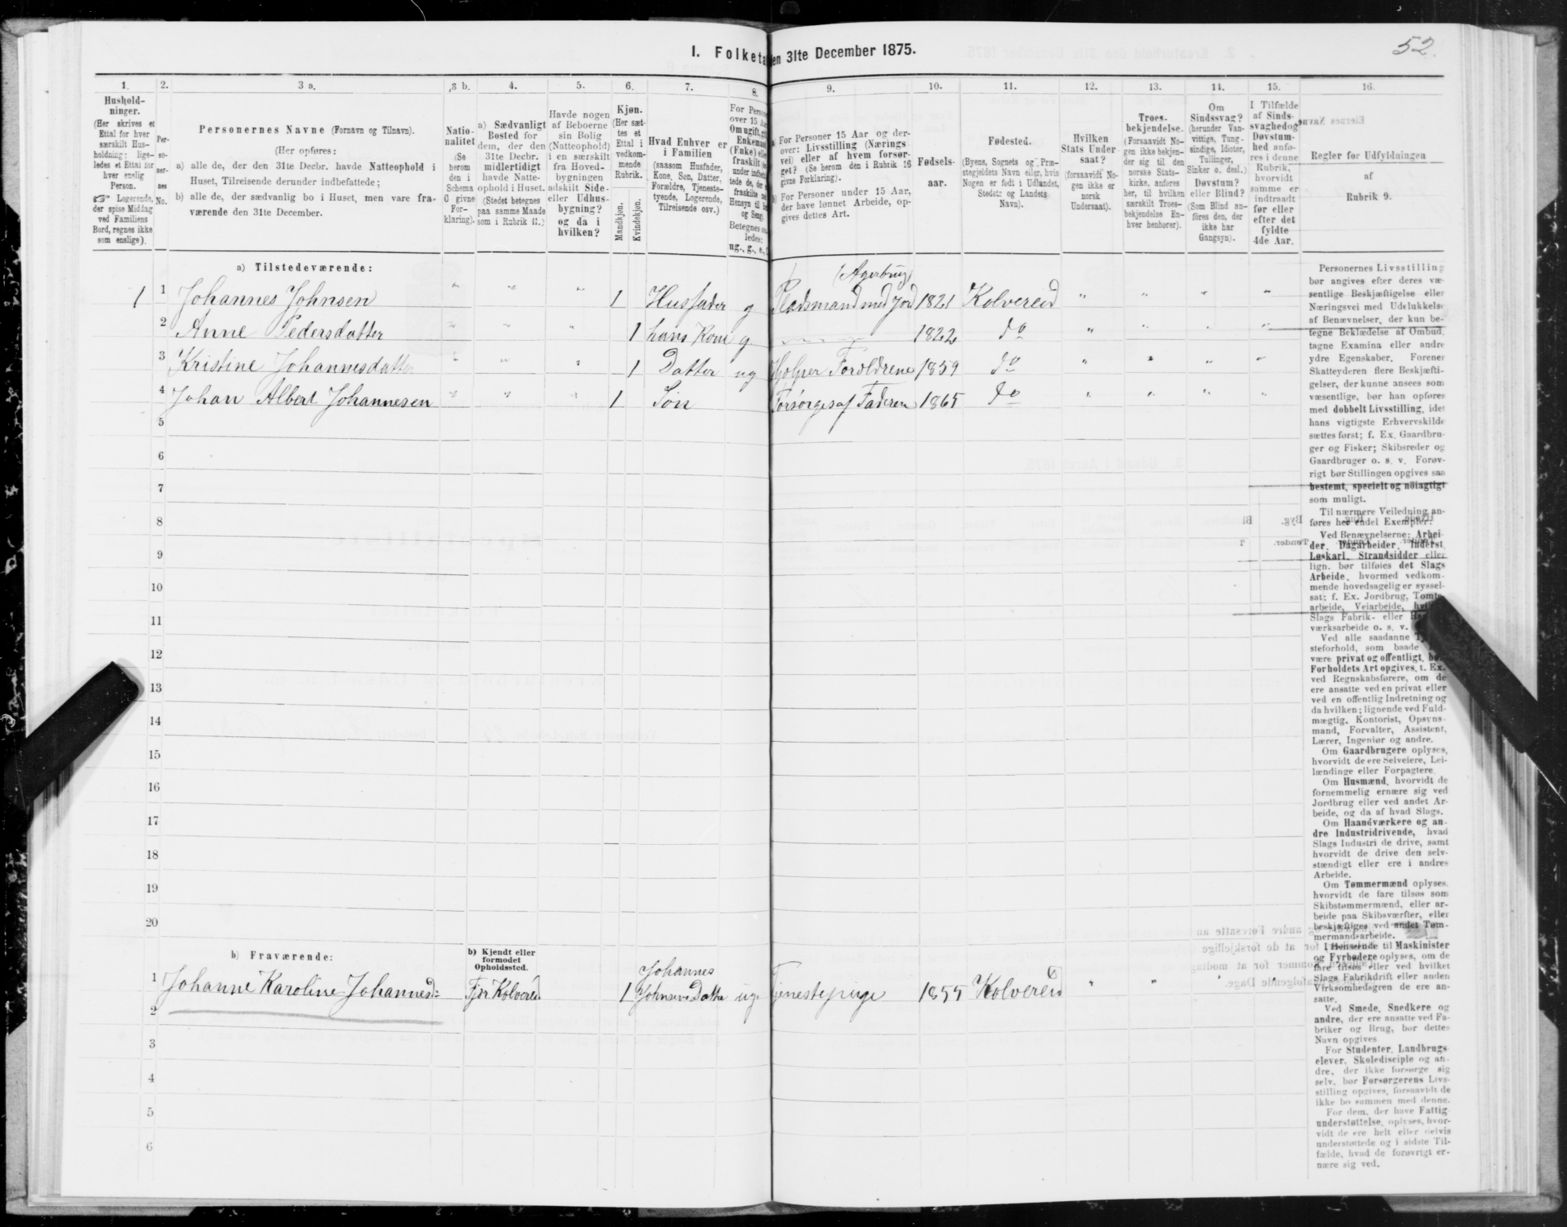 52.
I. Folketa
en 31te December 1875.
1.
2.
3 a.
3 b.
4.
5.
6.
7.
8.
9.
10.
11.
12.
13.
14.
15.
16.
Hushold-
ninger.
(Her skrives et
Ettal for hver
særskilt Hus-
holdning; lige-
ledes et Ettal for
hver enslig
Person.
Logerende,
der spise Middag
ved Familiens
Bord, regnes ikke
som enslige).
Per-
so-
ner-
nes
No.
Personernes Navne (Fornavn og Tilnavn).
(Her opføres:
a) alle de, der den 31te Decbr. havde Natteophold i
Huset, Tilreisende derunder indbefattede;
b) alle de, der sædvanlig bo i Huset, men vare fra-
værende den 31te December.
Natio-
nalitet
(Se
herom
den i
Schema
C givne
For-
klaring).
a) Sædvanligt
Bosted for
dem, der den
31te Decbr.
midlertidigt
havde Natte-
ophold i Huset.
(Stedet betegnes
paa samme Maade
som i Rubrik 11.)
Havde nogen
af Beboerne
sin Bolig
(Natteophold)
i en særskilt
fra Hoved-
bygningen
adskilt Side-
eller Udhus-
bygning?
og da i
hvilken?
Kjøn.
(Her sæt-
tes et
Ettal i
vedkom-
mende
Rubrik.
Mandkjøn.
Kvindekjøn.
Hvad Enhver er
i Familien
(saasom Husfader,
Kone, Søn, Datter,
Forældre, Tjeneste-
tyende, Logerende,
Tilreisende osv.)
For Personer 15 Aar og der-
over: Livsstilling (Nærings
vei) eller af hvem forsør-
get? (Se herom den i Rubrik 16
givne Forklaring).
For Personer under 15 Aar,
der have lønnet Arbeide, op-
gives dettes Art.
Fødsels-
aar.
Fødested.
(Byens, Sognets og Præ-
stegjeldets Navn eller, hvis
Nogen er født i Udlandet,
Stedets og Landets
Navn).
Hvilken
Stats Under
saat?
(forsaavidt No-
gen ikke er
norsk
Undersaat).
Troes-
bekjendelse.
(Forsaavidt No-
gen ikke bekjen-
der sig til den
norske Stats-
kirke, anføres
her, til hvilken
særskilt Troes-
bekjendelse En-
hver henhører).
Om
Sindssvag?
(herunder Van-
vittige, Tung-
sindige, Idioter,
Tullinger,
Sinker o. desl.)
Døvstum?
eller Blind?
(Som Blind an-
føres den, der
ikke har
Gangsyn).
I Tilfælde
af Sinds-
svaghed og
Døvstum-
hed anfø-
res i denne
Rubrik,
hvorvidt
samme er
indtraadt
før eller
efter det
fyldte
4de Aar.
Regler for Udfyldningen
af
Rubrik 9.
a) Tilstedeværende:
(Agerbrug)
1 1 Johannes Johnsen " " " 1 Husfader g Pladsmand med Jord 1821 Kolvereid " " " "
2 Anne Pedersdatter " " " 1 hans Kone g 1822 do " " " "
3 Kristine Johannesdatter " " " 1 Datter ug Hjelper Forældrene 1859 do " " " "
4 Johan Albert Johannesen " " " 1 Søn Forsørges af Faderen 1865 do " " " "
5
6
7
8
9
10
11
12
13
14
15
16
17
18
19
20
b) Fraværende:
b) Kjendt eller
formodet
Opholdssted.
Johannes
1 Johanne Karoline Johannesd: Fjær Kolvereid 1 Johnsens Datter ug Tjenestepige 1855 Kolvereid " "
2
3
4
5
6
Personernes Livsstilling
bør angives efter deres væ-
sentlige Beskjæftigelse eller
Næringsvei med Udelukkelse
af Benævnelser, der kun be-
tegne Beklædelse af Ombud,
tagne Examina eller andre
ydre Egenskaber. Forener
Skatteyderen flere Beskjæfti-
gelser, der kunne ansees som
væsentlige, bør han opføres
med dobbelt Livsstilling, idet
hans vigtigste Erhvervskilde
sættes først; f. Ex. Gaardbru-
ger og Fisker; Skibsreder og
Gaardbruger o. s. v. Forøv-
rigt bør Stillingen opgives saa
bestemt, specielt og nøiagtigt
som muligt.
Til nærmere Veiledning an-
føres her endel Exempler:
Ved Benævnelserne: Arbei-
der, Dagarbeider, Inderst,
Løskarl, Strandsidder eller
lign. bør tilføies det Slags
Arbeide, hvormed vedkom-
mende hovedsagelig er syssel-
sat; f. Ex. Jordbrug, Tomte-
arbeide, Veiarbeide,
Slags Fabrik- eller
værksarbeide o. s. v.
Ved alle saadanne
steforhold, som baade
være privat og offentligt,
Forholdets Art opgives, t. Ex.
ved Regnskabsførere, om de
ere ansatte ved en privat eller
ved en offentlig Indretning og
da hvilken; lignende ved Fuld-
mægtig, Kontorist, Opsyns-
mand, Forvalter, Assistent,
Lærer, Ingeniør og andre.
Om Gaardbrugere oplyses,
hvorvidt de ere Selveiere, Lei-
lændinge eller Forpagtere.
Om Husmænd, hvorvidt de
fornemmelig ernære sig ved
Jordbrug eller ved andet Ar-
beide, og da af hvad Slags.
Om Haandværkere og an-
dre Industridrivende, hvad
Slags Industri de drive, samt
hvorvidt de drive den selv-
stændigt eller ere i andres
Arbeide.
Om Tømmermænd oplyses,
hvorvidt de fare tilsøs som
Skibstømmermænd, eller ar-
beide paa Skibsværfter, eller
beskjæftiges ved andet Tøm-
mermandsarbeide.
I Henseende til Maskinister
og Fyrbødere oplyses, om de
fare tilsøs eller ved hvilket
Slags Fabrikdrift eller anden
Virksomhedsgren de ere an-
satte.
Ved Smede, Snedkere og
andre, der ere ansatte ved Fa-
briker og Brug, bør dettes
Navn opgives
For Studenter, Landbrugs-
elever, Skoledisciple og an-
dre, der ikke forsørge sig
selv, bør Forsørgerens Livs-
stilling opgives, forsaavidt de
ikke bo sammen med denne.
For dem, der have Fattig-
understøttelse, oplyses, hvor-
vidt de ere helt eller delvis
understøttede og i sidste Til-
fælde, hvad de forøvrigt er-
nære sig ved.